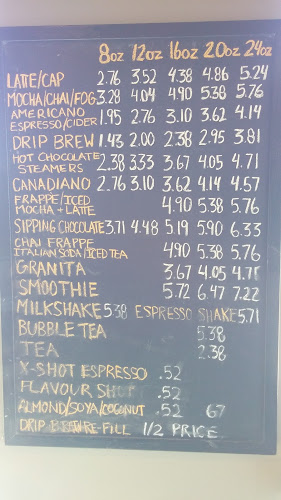 8oz 12oz 16oz 20oz 24oz
LATTE/CAP 2.76 3.52 4.38 4.86 5.24
MOCHA/CHAI/FOG 3.28 4.04 4.90 5.38 5.76
AMERICANO
ESPRESSO/CIDER 1.95 2.76 3.10 3.62 4.14
DRIP BREW 1.43 2.00 2.38 2.95 3.81
HOT CHOCOLATE
STEAMERS 2.38 3.33 3.67 4.05 4.71
CANADIANO 2.76 3.10 3.62 4.14 4.57
FRAPPE/ICED
MOCHA + LATTE 4.90 5.38 5.76
SIPPING CHOCOLATE 3.71 4.48 5.19 5.90 6.33
CHAI FRAPPE
ITALIAN SODA/ICED TEA 4.90 5.38 5.76
GRANITA 3.67 4.05 4.71
SMOOTHIE 5.72 6.47 7.22
MILKSHAKE 5.38 ESPRESSO SHAKE 5.71
BUBBLE TEA 5.38
TEA 2.38
X-SHOT ESPRESSO .52
FLAVOUR SHOT .52
ALMOND/SOYA/COCONUT .52 67
DRIP RE-FILL 1/2 PRICE